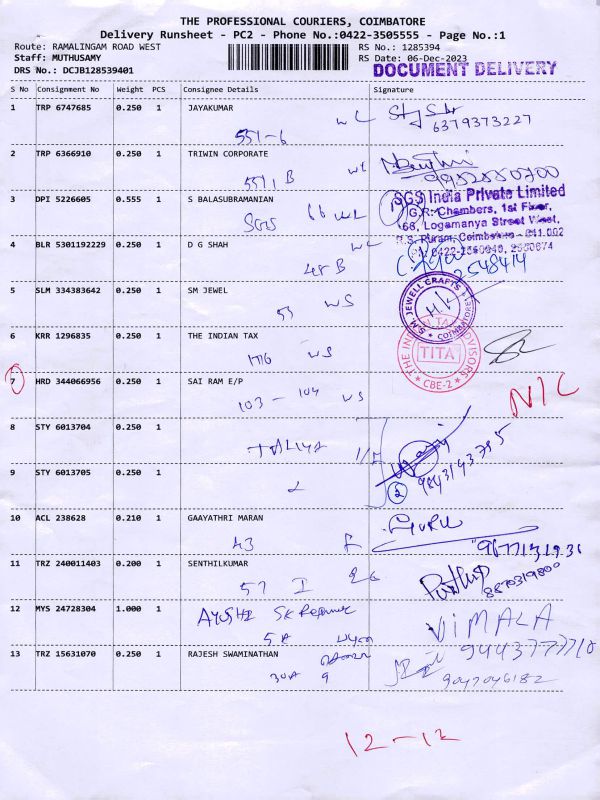 THE PROFESSIONAL COURIERS, COIMBATORE
Delivery Runsheet - PC2 - Phone No.:0422-3505555 - Page No.:1
Route: RAMALINGAM ROAD WEST
RS No.: 1285394
Staff: MUTHUSAMY
RS Date: 06-Dec-2023
DRS No.: DCJB128539401
DOCUMENT DELIVERY
S No Consignment No Weight PCS Consignee Details Signature
1 TRP 6747685 0.250 1 JAYAKUMAR
6379373227
551-6
2 TRP 6366910 0.250 1 TRIWIN CORPORATE
5511 B
3 DPI 5226605 0.555 1 S BALASUBRAMANIAN
SGS 66 WL
SGS India Private Limited
G.R. Chambers, 1st Floor,
66, Logamanya Street West,
R.S. Puram, Coimbatore - 641 002
4 BLR 5301192229 0.250 1 D G SHAH
48 B
2548414
5 SLM 334383642 0.250 1 SM JEWEL
55 WS
S.M. JEWELL CRAFTS
COIMBATORE
6 KRR 1296835 0.250 1 THE INDIAN TAX
176 WS
THE INDIAN TAX ADVISORS
TITA
CBE-2
7 HRD 344066956 0.250 1 SAI RAM E/P
103 - 104 WS
N/C
8 STY 6013704 0.250 1
TALIYA
9843143795
9 STY 6013705 0.250 1
2
10 ACL 238628 0.210 1 GAAYATHRI MARAN
GURU
43
11 TRZ 240011403 0.200 1 SENTHILKUMAR
57 I
8870319800
12 MYS 24728304 1.000 1 AYUSHI
5A
VIMALA
13 TRZ 15631070 0.250 1 RAJESH SWAMINATHAN
30A 9
9047046182
12-12